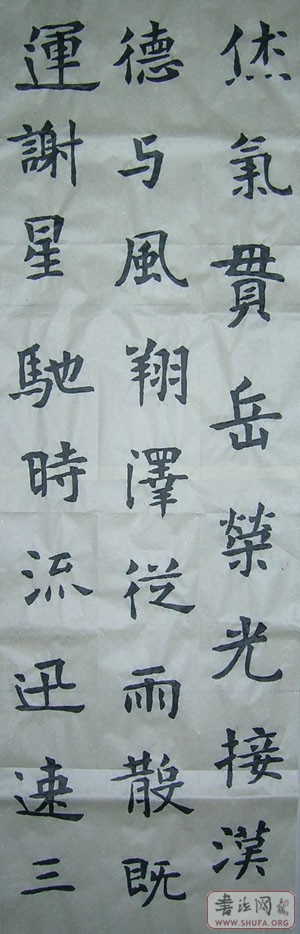 烋氣貫岳榮光接漢
德与風翔澤従雨散既
運謝星馳時流迅速三
書法网
WWW.SHUFA.ORG